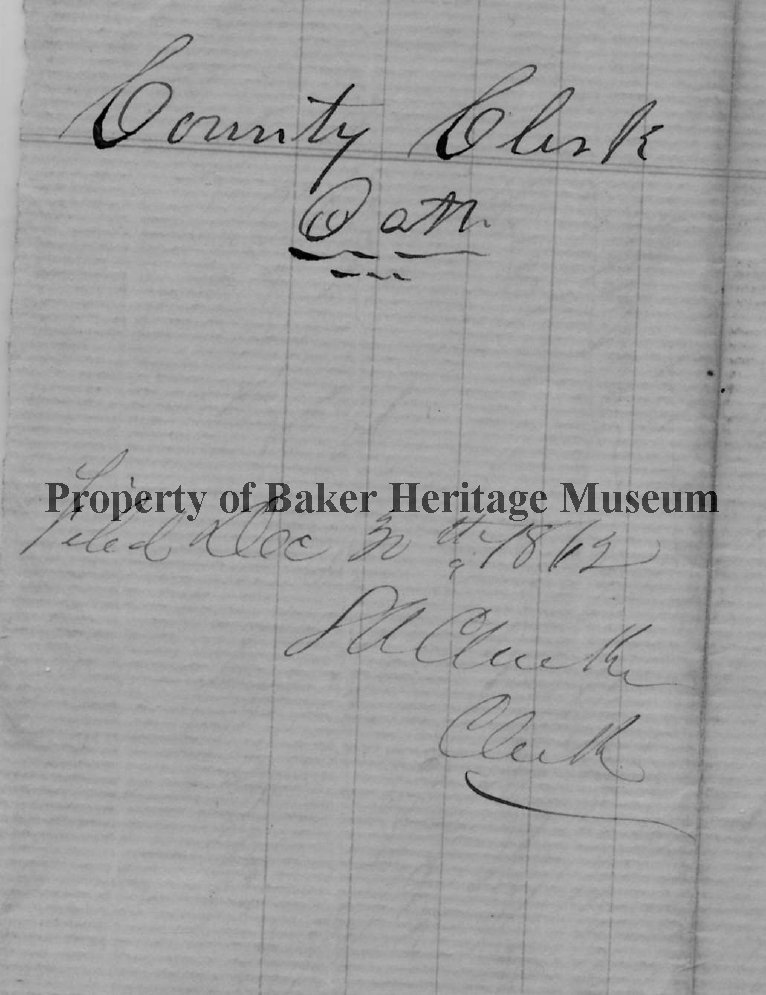 County Clerk
Oath
Property of Baker Heritage Museum
Filed Dec 30th 1862
S A Clarke
Clerk